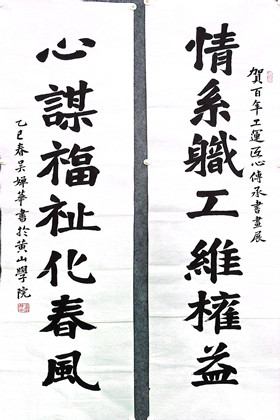 賀百年工運匠心傳承書畫展
情系職工維權益
心謀福祉化春風
乙巳春吴嬋華書於黄山學院